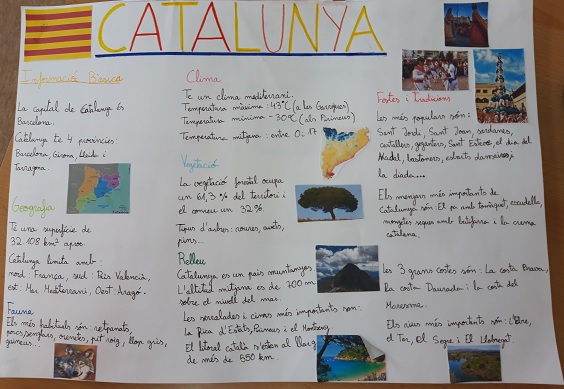 CATALUNYA
Informació Bàsica
La capital de Catalunya és
Barcelona.
Catalunya te 4 províncies:
Barcelona, Girona, Lleida i
Tarragona.
Geografia
Té una superfície de
32.108 km² aprox.
Catalunya limita amb:
nord: França, sud: País Valencià,
est: Mar Mediterrani, Oest: Aragó.
Fauna
Els més habituals són: ratpenats,
porcs senglars, orenetes, pit roig, llop gris,
guineus...
Clima
Te un clima mediterrani.
Temperatura màxima: 43°C (a les Garrigues)
Temperatura mínima - 30°C (als Pirineus)
Temperatura mitjana: entre 0 i 17
Vegetació
La vegetació forestal ocupa
un 61,3 % del territori i
el conreu un 32%.
Tipus d'arbres: roures, avets,
pins...
Relleu
Catalunya es un país muntanyós
L'altitud mitjana es de 700 m
sobre el nivell del mar.
Les serralades i cims més importants són:
La Pica d'Estats, Pirineus i el Montseny.
El litoral català s'esten al llarg
de més de 550 km.
Festes i Tradicions
Les més populars són:
Sant Jordi, Sant Joan, sardanes,
castallers, geganters, Sant Esteve, el dia del
Nadal, bastoners, esbarts dansaires i
la diada...
Els menjars més importants de
Catalunya són: El pa amb tomàquet, escudella,
mongetes seques amb butifarra i la crema
catalana.
Les 3 grans costes són: La costa Brava,
la costa Daurada i la costa del
Maresme.
Els rius més importants són: L'Ebre,
el Ter, el Segre i El Llobregat.